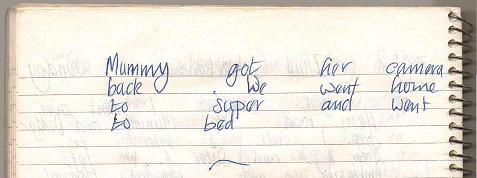 Mummy got her camera
back . We went home
to super and went
to bed